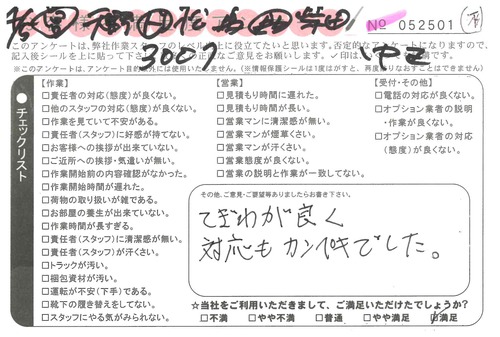 No 052501
このアンケートは、弊社作業スタッフのレベル向上に役立てたいと思います。否定的なアンケートになりますので、
3007
※このアンケートは、アンケート目的以外には使用いたしません。(※情報保護シールは1度はがすと、再度貼りなおすことはできません)
チェックリスト
【作業】
□責任者の対応(態度)が良くない。
□他のスタッフの対応(態度)が良くない。
□作業を見ていて不安がある。
□責任者(スタッフ)に好感が持てない。
□お客様への挨拶が出来ていない。
□ご近所への挨拶・気遣いが無い。
□作業開始前の内容確認がなかった。
□作業開始時間が遅れた。
□荷物の取り扱いが雑である。
□お部屋の養生が出来ていない。
□作業時間が長すぎる。
□責任者(スタッフ)に清潔感が無い。
□責任者(スタッフ)が汗くさい。
□トラックが汚い。
□梱包資材が汚い。
□運転が不安(下手)である。
□靴下の履き替えをしてない。
□スタッフにやる気がみられない。
【営業】
□見積もり時間に遅れた。
□見積もり時間が長い。
□営業マンに清潔感が無い。
□営業マンが煙草くさい。
□営業マンが汗くさい。
□営業態度が良くない。
□営業の説明と作業が一致してない。
【受付・その他】
□電話の対応が良くない。
□オプション業者の説明
・作業が良くない。
□オプション業者の対応
(態度)が良くない。
その他、ご意見・ご要望等ありましたらお書き下さい。
てぎわが良く
対応もカンペキでした。
☆当社をご利用いただきまして、ご満足いただけたでしょうか?
□不満 □やや不満 □普通 □やや満足 ☑満足